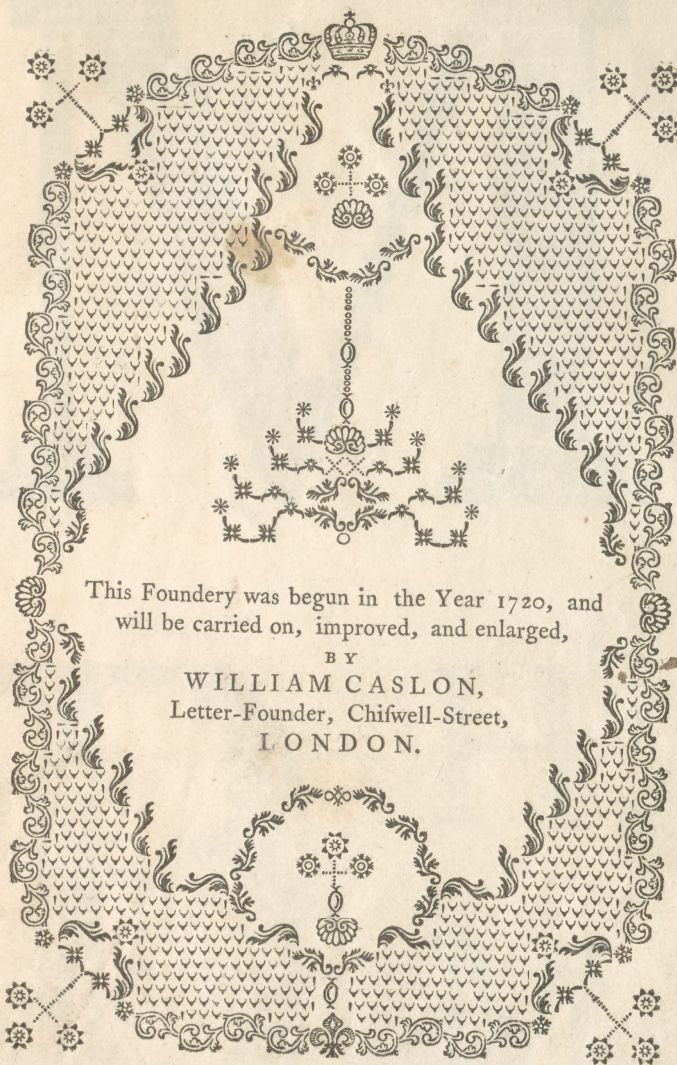 This Foundery was begun in the Year 1720, and
will be carried on, improved, and enlarged,
BY
WILLIAM CASLON,
Letter-Founder, Chiſwell-Street,
LONDON.